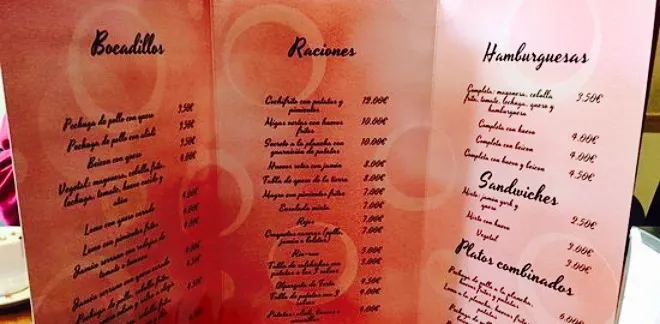 Bocadillos
Pechuga de pollo con queso 3.50€
Pechuga de pollo con alioli 3.50€
Beicon con queso 3.50€
Vegetal: mayonesa, cebolla frita, 4.00€
lechuga, tomate, huevo cocido y
atún
Lomo con queso curado 4.00€
Lomo con pimientos fritos 4.00€
Jamón serrano con rodajas de
tomate o tomaca
Jamón serrano con queso curado
Pechuga de pollo, cebolla
Raciones
Cochifrito con patatas y 12.00€
pimientos
Migas sortas con huevos 10.00€
fritos
Secreto a la plancha con 10.00€
guarnición de patatas
Huevos rotos con jamón 8.00€
Tabla de queso de la tierra 8.00€
Magro con pimientos fritos 7.00€
Ensalada mixta 7.00€
7.00€
Croquetas caseras (pollo, 7.00€
jamón o boletus)
5.00€
Tabla de salchichas con 5.00€
patatas a las 3 salsas
5.00€
Tabla de patatas con 4.00€
3 salsas
Patatas: alioli, bravas o
Hamburguesas
Completa: mayonesa, cebolla 3.50€
frita, tomate, lechuga, queso y
hamburguesa
Completa con huevo 4.00€
Completa con beicon 4.00€
Completa con huevo y beicon 4.50€
Sandwiches
Mixto: jamón york y 2.50€
queso
Mixto con huevo 3.00€
Vegetal 3.00€
Platos combinados
Pechuga de pollo a la plancha,
Lomo a la plancha, huevos 6.00€
fritos, patatas